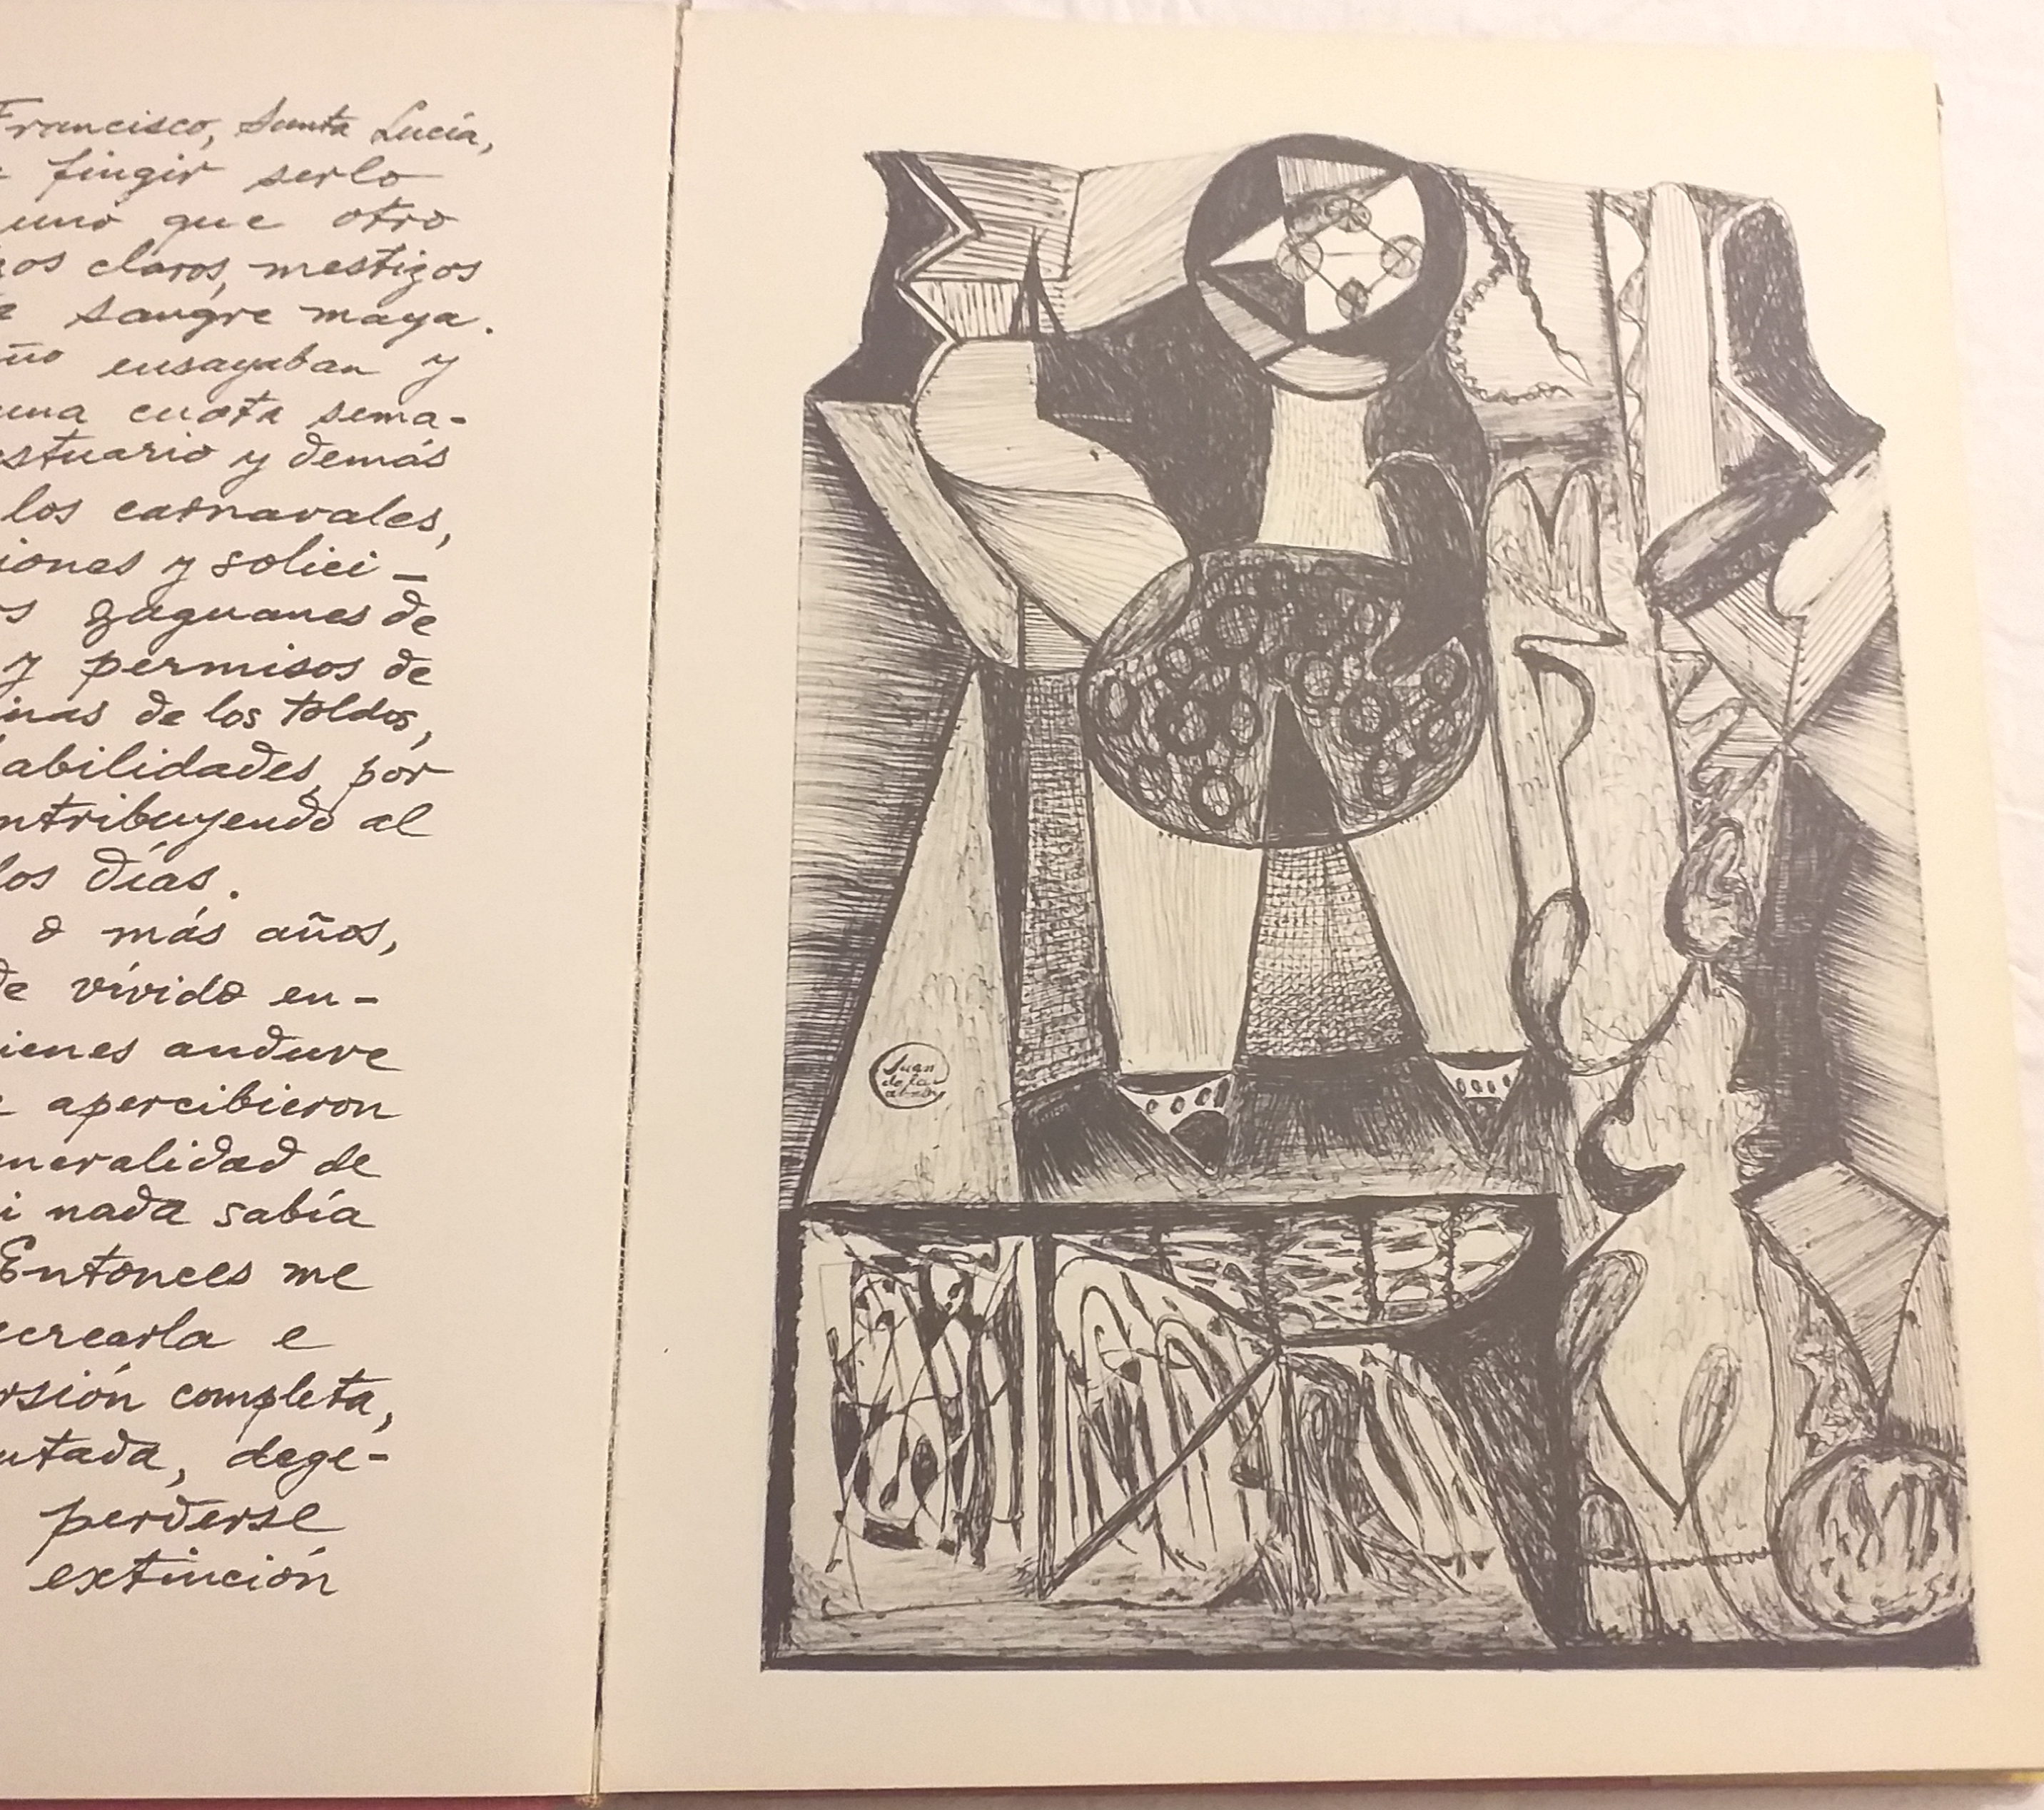 Francisco, Santa Lucía,
fingir serlo
uno que otro
claros, mestizos
sangre maya.
ensayaban y
una cuota sema-
estuario y demás
los carnavales,
iones y solici-
zaguanes de
y permisos de
inas de los toldos,
abilidades, por
ntribuyendo al
los días.
o más años,
de vivido en-
ienes anduve
apercibieron
neralidad de
i nada sabía
Entonces me
ecrearla e
rsión completa,
utada, dege-
perderse
extinción
Juan
de la